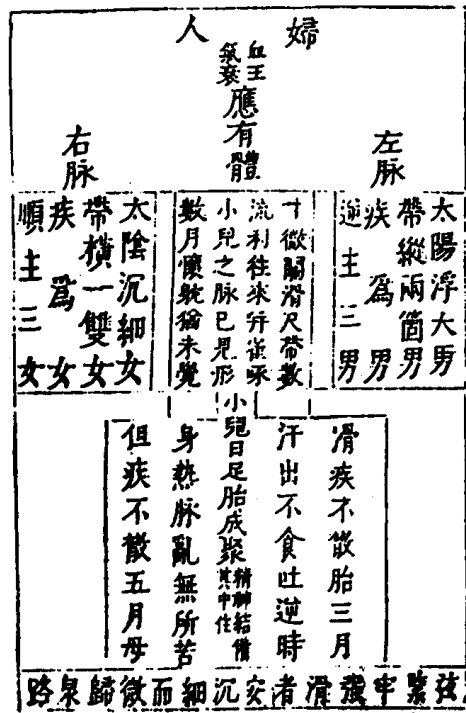 婦人
血王
氣衰
應有體
左脉
右脉
太陽浮大男
帶縱兩箇男
疾為男
逆主三男
寸微關滑尺帶數
流利往來并雀啄
小兒之脉已見形
數月懷躭猶未覺
太陰沉細女
帶橫一雙女
疾為女
順主三女
滑疾不散胎三月
汗出不食吐逆時
小兒日足胎成聚
精神結備
其中住
身熱脉亂無所苦
但疾不散五月母
弦緊牢強滑者安沉細而微歸泉路